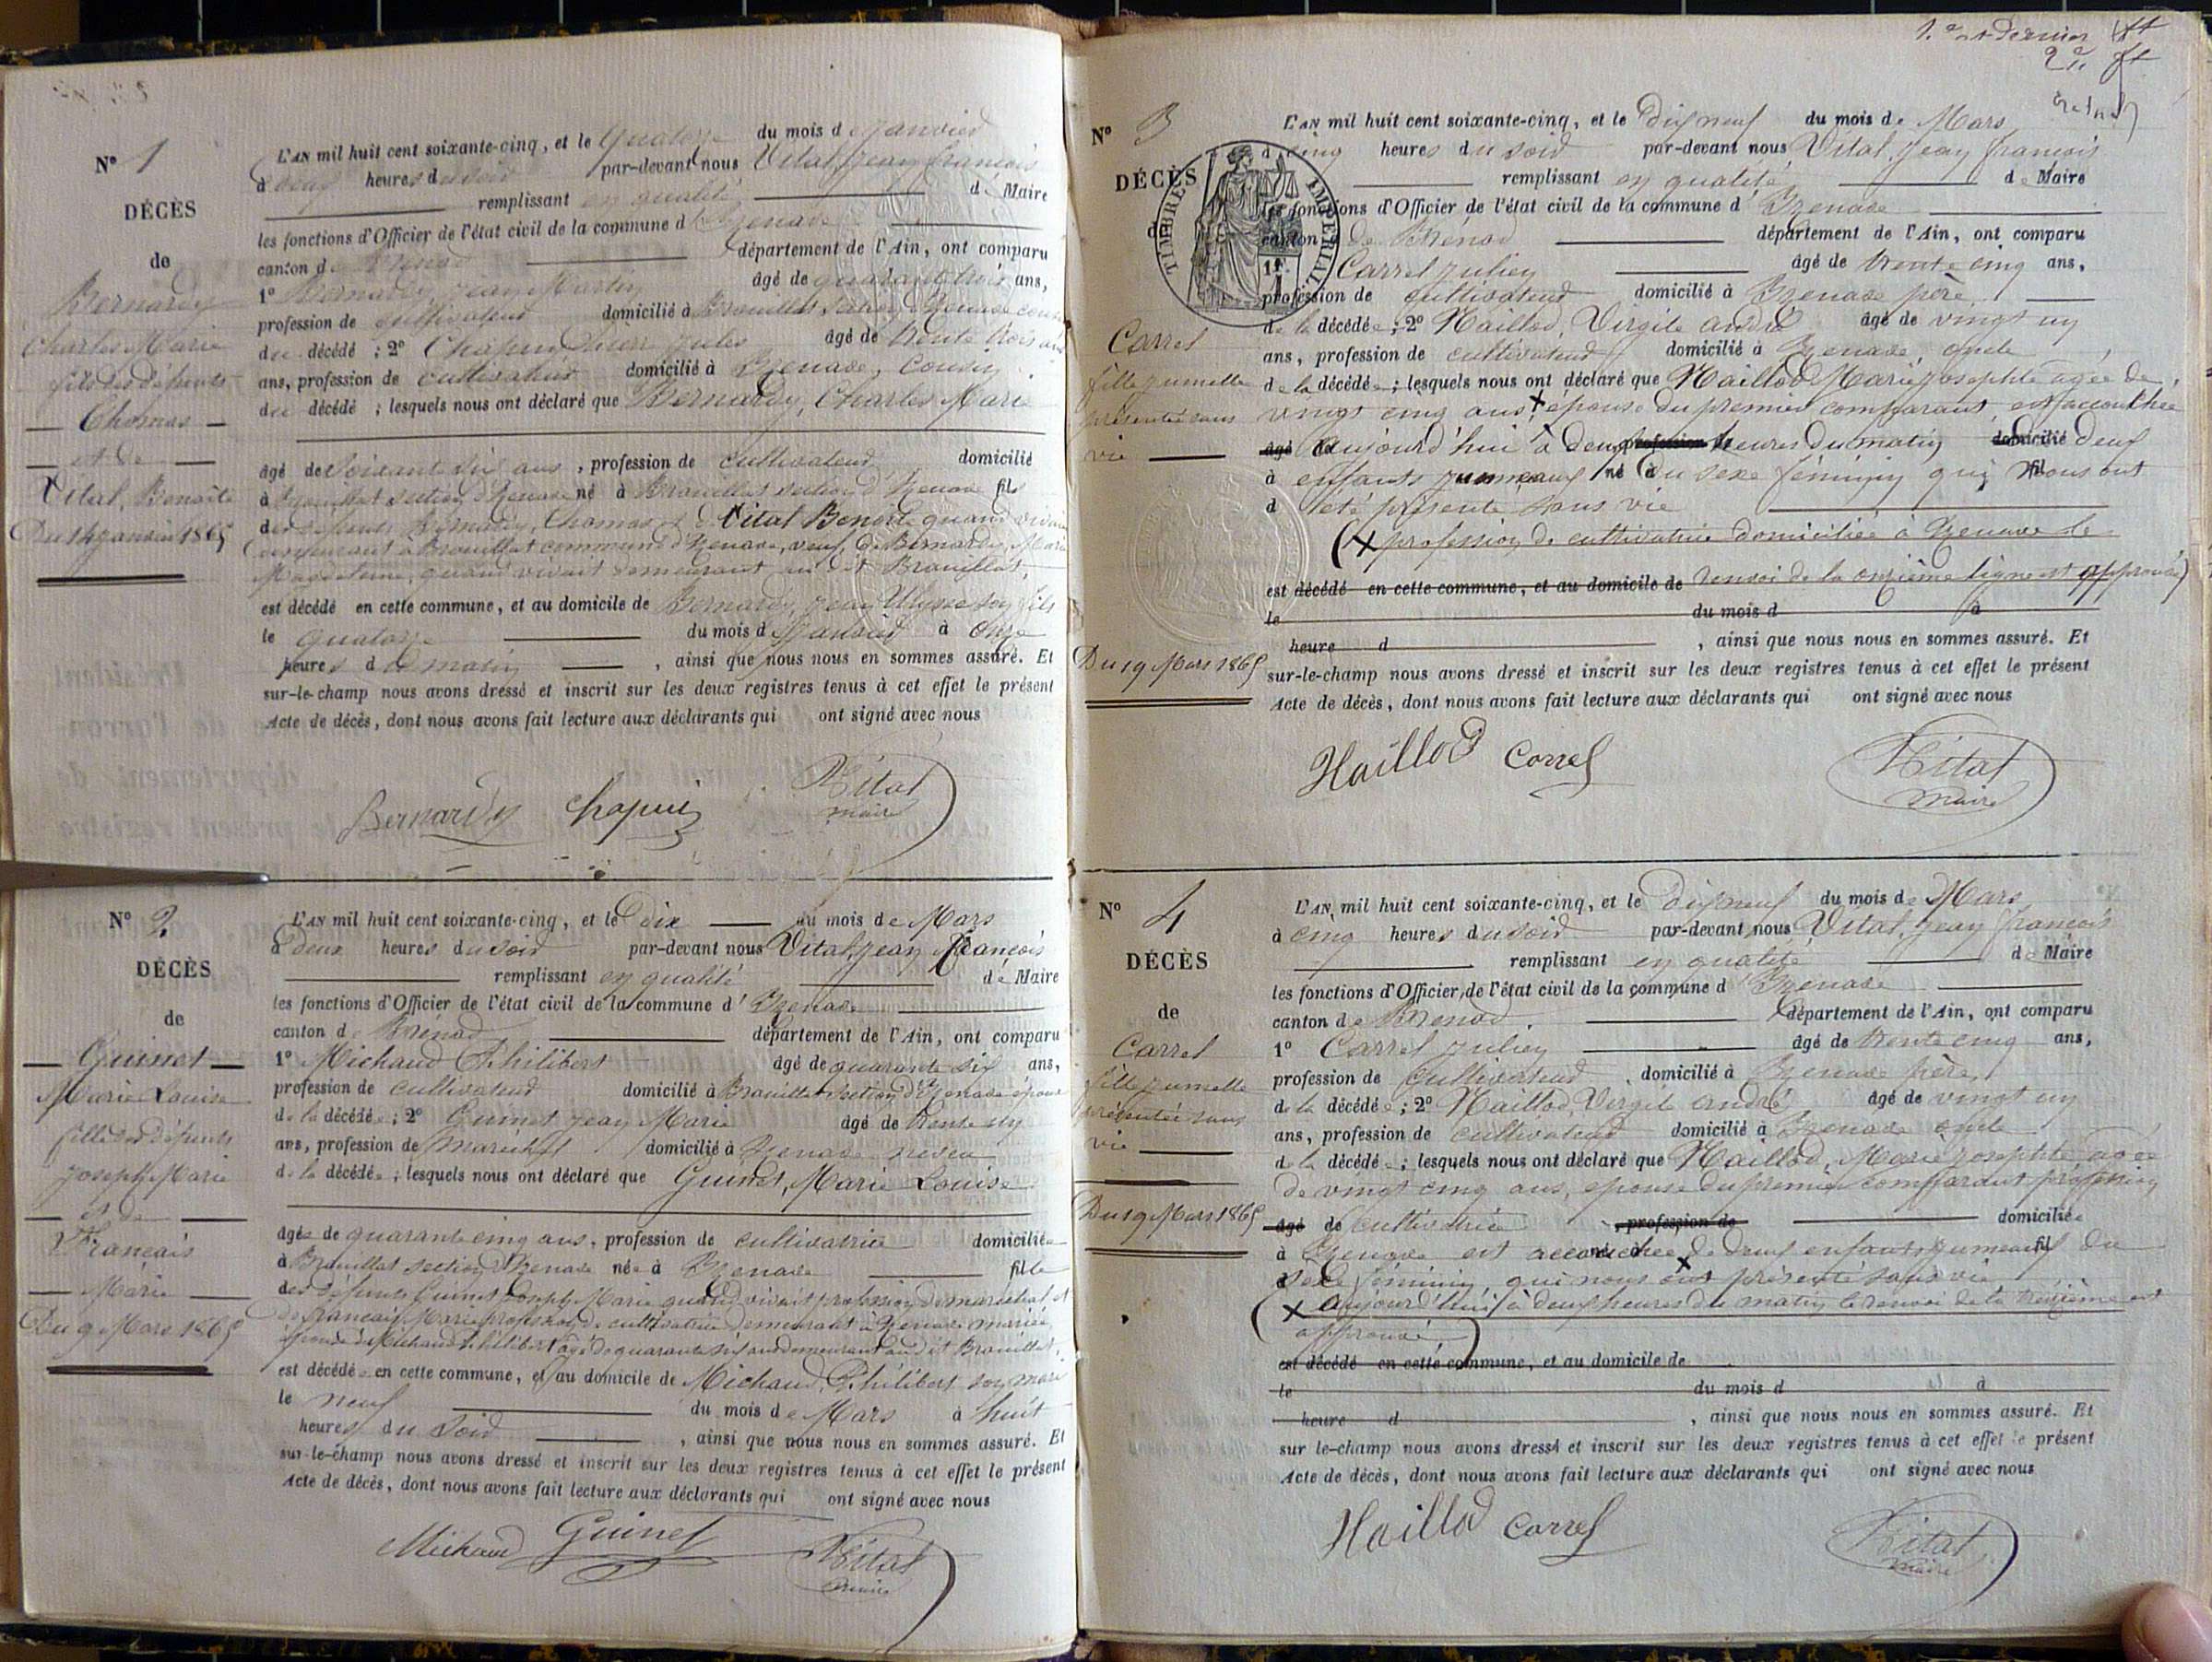 N° 1
DÉCÈS
de
Bernardy
Charles Marie
fils des défunts
Thomas
et de
Vital, Benoite
Du 14 Janvier 1865
L'AN mil huit cent soixante-cinq, et le Quatorze du mois de Janvier
à heures du soir par-devant nous Vital, Jean François
remplissant en qualité de Maire
les fonctions d'Officier de l'état civil de la commune d'Izenave
canton de Brenod département de l'Ain, ont comparu
1° Bernardy, Jean Martin âgé de quarante trois ans,
profession de cultivateur domicilié à Brouillat section d'Izenave cousin
du décédé ; 2° Chapuy Jules âgé de trente trois ans
ans, profession de cultivateur domicilié à Izenave, cousin
du décédé ; lesquels nous ont déclaré que Bernardy, Charles Marie
âgé de soixante dix ans, profession de cultivateur domicilié
à Brouillat section d'Izenave né à Brouillat section d'Izenave fils
des défunts Bernardy, Thomas et de Vital Benoite quand vivaient
demeurant à Brouillat commune d'Izenave, veuf de Bernardy, Marie
Magdeleine, quand vivait demeurant au dit Brouillat,
est décédé en cette commune, et au domicile de Bernardy, Jean Ulysse son fils
le quatorze du mois de Janvier à onze
heures du matin, ainsi que nous nous en sommes assuré. Et
sur-le-champ nous avons dressé et inscrit sur les deux registres tenus à cet effet le présent
Acte de décès, dont nous avons fait lecture aux déclarants qui ont signé avec nous
Bernardy Chapuis Vital
maire
N° 2
DÉCÈS
de
Guinet
Marie Louise
fille des défunts
Joseph Marie
et de
Français
Marie
Du 9 Mars 1865
L'AN mil huit cent soixante-cinq, et le dix du mois de Mars
à deux heures du soir par-devant nous Vital, Jean François
remplissant en qualité de Maire
les fonctions d'Officier de l'état civil de la commune d'Izenave
canton de Brenod département de l'Ain, ont comparu
1° Michaud Philibert âgé de quarante six ans,
profession de cultivateur domicilié à Brouillat section d'Izenave époux
de la décédée ; 2° Guinet Jean Marie âgé de trente un
ans, profession de domicilié à Izenave neveu
de la décédée ; lesquels nous ont déclaré que Guinet, Marie Louise
âgée de quarante cinq ans, profession de cultivatrice domiciliée
à Brouillat section d'Izenave née à Izenave fille
des défunts Guinet Joseph Marie quand vivait profession de maréchal et
de Français Marie profession de cultivatrice demeurant à Izenave mariée
épouse de Michaud Philibert âgé de quarante six ans demeurant au dit Brouillat,
est décédée en cette commune, et au domicile de Michaud, Philibert son mari
le neuf du mois de Mars à huit
heures du soir, ainsi que nous nous en sommes assuré. Et
sur-le-champ nous avons dressé et inscrit sur les deux registres tenus à cet effet le présent
Acte de décès, dont nous avons fait lecture aux déclarants qui ont signé avec nous
Michaud Guinet Vital
maire
1er et dernier
N° 3
DÉCÈS
d
TIMBRE IMPERIAL
1F.
Carrel
fille jumelle
présentée sans
vie
Du 19 Mars 1865
L'AN mil huit cent soixante-cinq, et le Dix neuf du mois de Mars
à cinq heures du soir par-devant nous Vital, Jean François
remplissant en qualité de Maire
les fonctions d'Officier de l'état civil de la commune d'Izenave
canton de Brenod département de l'Ain, ont comparu
Carrel Julien âgé de trente cinq ans,
profession de cultivateur domicilié à Izenave père
de la décédée ; 2° Maillod, Virgile André âgé de vingt un
ans, profession de cultivateur domicilié à Izenave, oncle
de la décédée ; lesquels nous ont déclaré que Maillod Marie Josephte agée de
vingt cinq ans, x épouse du premier comparant, est accouchée
âgé de aujourd'hui à deux profession heures du matin domicilié deux
à enfants jumeaux né à du sexe féminin qui nous ont
d été présenté sans vie
(x profession de cultivatrice domiciliée à Izenave le
est décédé en cette commune, et au domicile de renvoi de la onzième ligne est approuvé)
le du mois d à
heure d, ainsi que nous nous en sommes assuré. Et
sur-le-champ nous avons dressé et inscrit sur les deux registres tenus à cet effet le présent
Acte de décès, dont nous avons fait lecture aux déclarants qui ont signé avec nous
Maillod Carrel Vital
maire
N° 4
DÉCÈS
de
Carrel
fille jumelle
présentée sans
vie
Du 19 Mars 1865
L'AN mil huit cent soixante-cinq, et le Dix neuf du mois de Mars
à cinq heures du soir par-devant nous Vital, Jean François
remplissant en qualité de Maire
les fonctions d'Officier de l'état civil de la commune d'Izenave
canton de Brenod département de l'Ain, ont comparu
1° Carrel Julien âgé de trente cinq ans,
profession de cultivateur domicilié à Izenave père
de la décédée ; 2° Maillod, Virgile André âgé de vingt un
ans, profession de cultivateur domicilié à Izenave oncle
de la décédée ; lesquels nous ont déclaré que Maillod, Marie Josephte agée
de vingt cinq ans, épouse du premier comparant profession
âgé de cultivatrice profession de domiciliée
à Izenave est accouchée de deux enfants jumeaux du
sexe féminin, qui nous ont x présenté sans vie
(x aujourd'hui à deux heures du matin le renvoi de la treizième est
approuvé)
est décédé en cette commune, et au domicile de
le du mois d à
heure d, ainsi que nous nous en sommes assuré. Et
sur le-champ nous avons dressé et inscrit sur les deux registres tenus à cet effet le présent
Acte de décès, dont nous avons fait lecture aux déclarants qui ont signé avec nous
Maillod Carrel Vital
maire